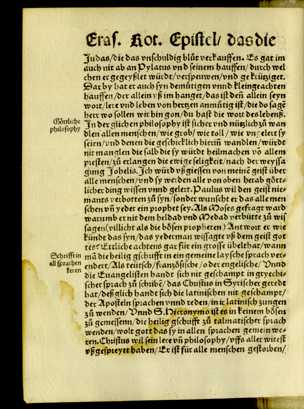 Eras. Rot. Epistel / das die
Judas / die das vnschuldig blůt verkauffen. Es gat im
auch nit ab an Pylatus vnd seinem hauffen / durch wel
chen er gegeyßlet würdt / verspouwen / vnd gekrüziget.
Dar by hat er auch syn demůtigen vnnd kleingeachten
hauffen / der allein vff im hanget, das ist den allein seyn
wort / lere vnd leben von hertzen anmůtig ist / die do sagẽ
herr wo sollen wir hin gon / du hast die wort des lebens.
In der glichen philosophy ist sicher vnd nüchtz võ no
den allen menschen / wie grob / wie toll / wie
seien / vnd denen die geschicklich hierin wandlen / würdt
nit manglen die salb die sy würdt heimlichen võ allem
presten / zů erlangen die ewige seligkeit / nach der weyssa
gung Johelis. Ich würd vßgiessen von meinẽ geist über
alle menschen / vnd sy werden alle von oben herab gött-
licher ding wissen vnnd gelert. Paulus wil den geist nie
mants verbotten
Göttliche
philosophy
Schrifft in
all sprachen
keren
kündt das syn / das yederman wissagte vß dem geist got
tes? Etliche achtens gar für ein grosse übelthat / wann
mã die heilig gschrifft in ein gemeine laysche sprach ver-
endert / Als teütsche / französische / oder engelische / Vnnd
die Euangelisten handt sich nit geschampt in gryechi-
scher sprach zů schribẽ / das Christus in Syrischer gered
hat / deßglich handt sich die latinischen nit geschampt /
der Apostelen sprachen vnnd reden / in ir latinisch zungen
zů wenden / Vnnd S. Hieronymo ist es in keinem bösen
zů gemessenn / die heilig gschrifft zů talmatischer sprach
wenden / wolt gott das sy in allen sprachen gemein we-
ren. Christus wil sein lere vñ philosophy / vffs aller witest
vßgespreyt haben / Er ist für alle menschen gestorben /